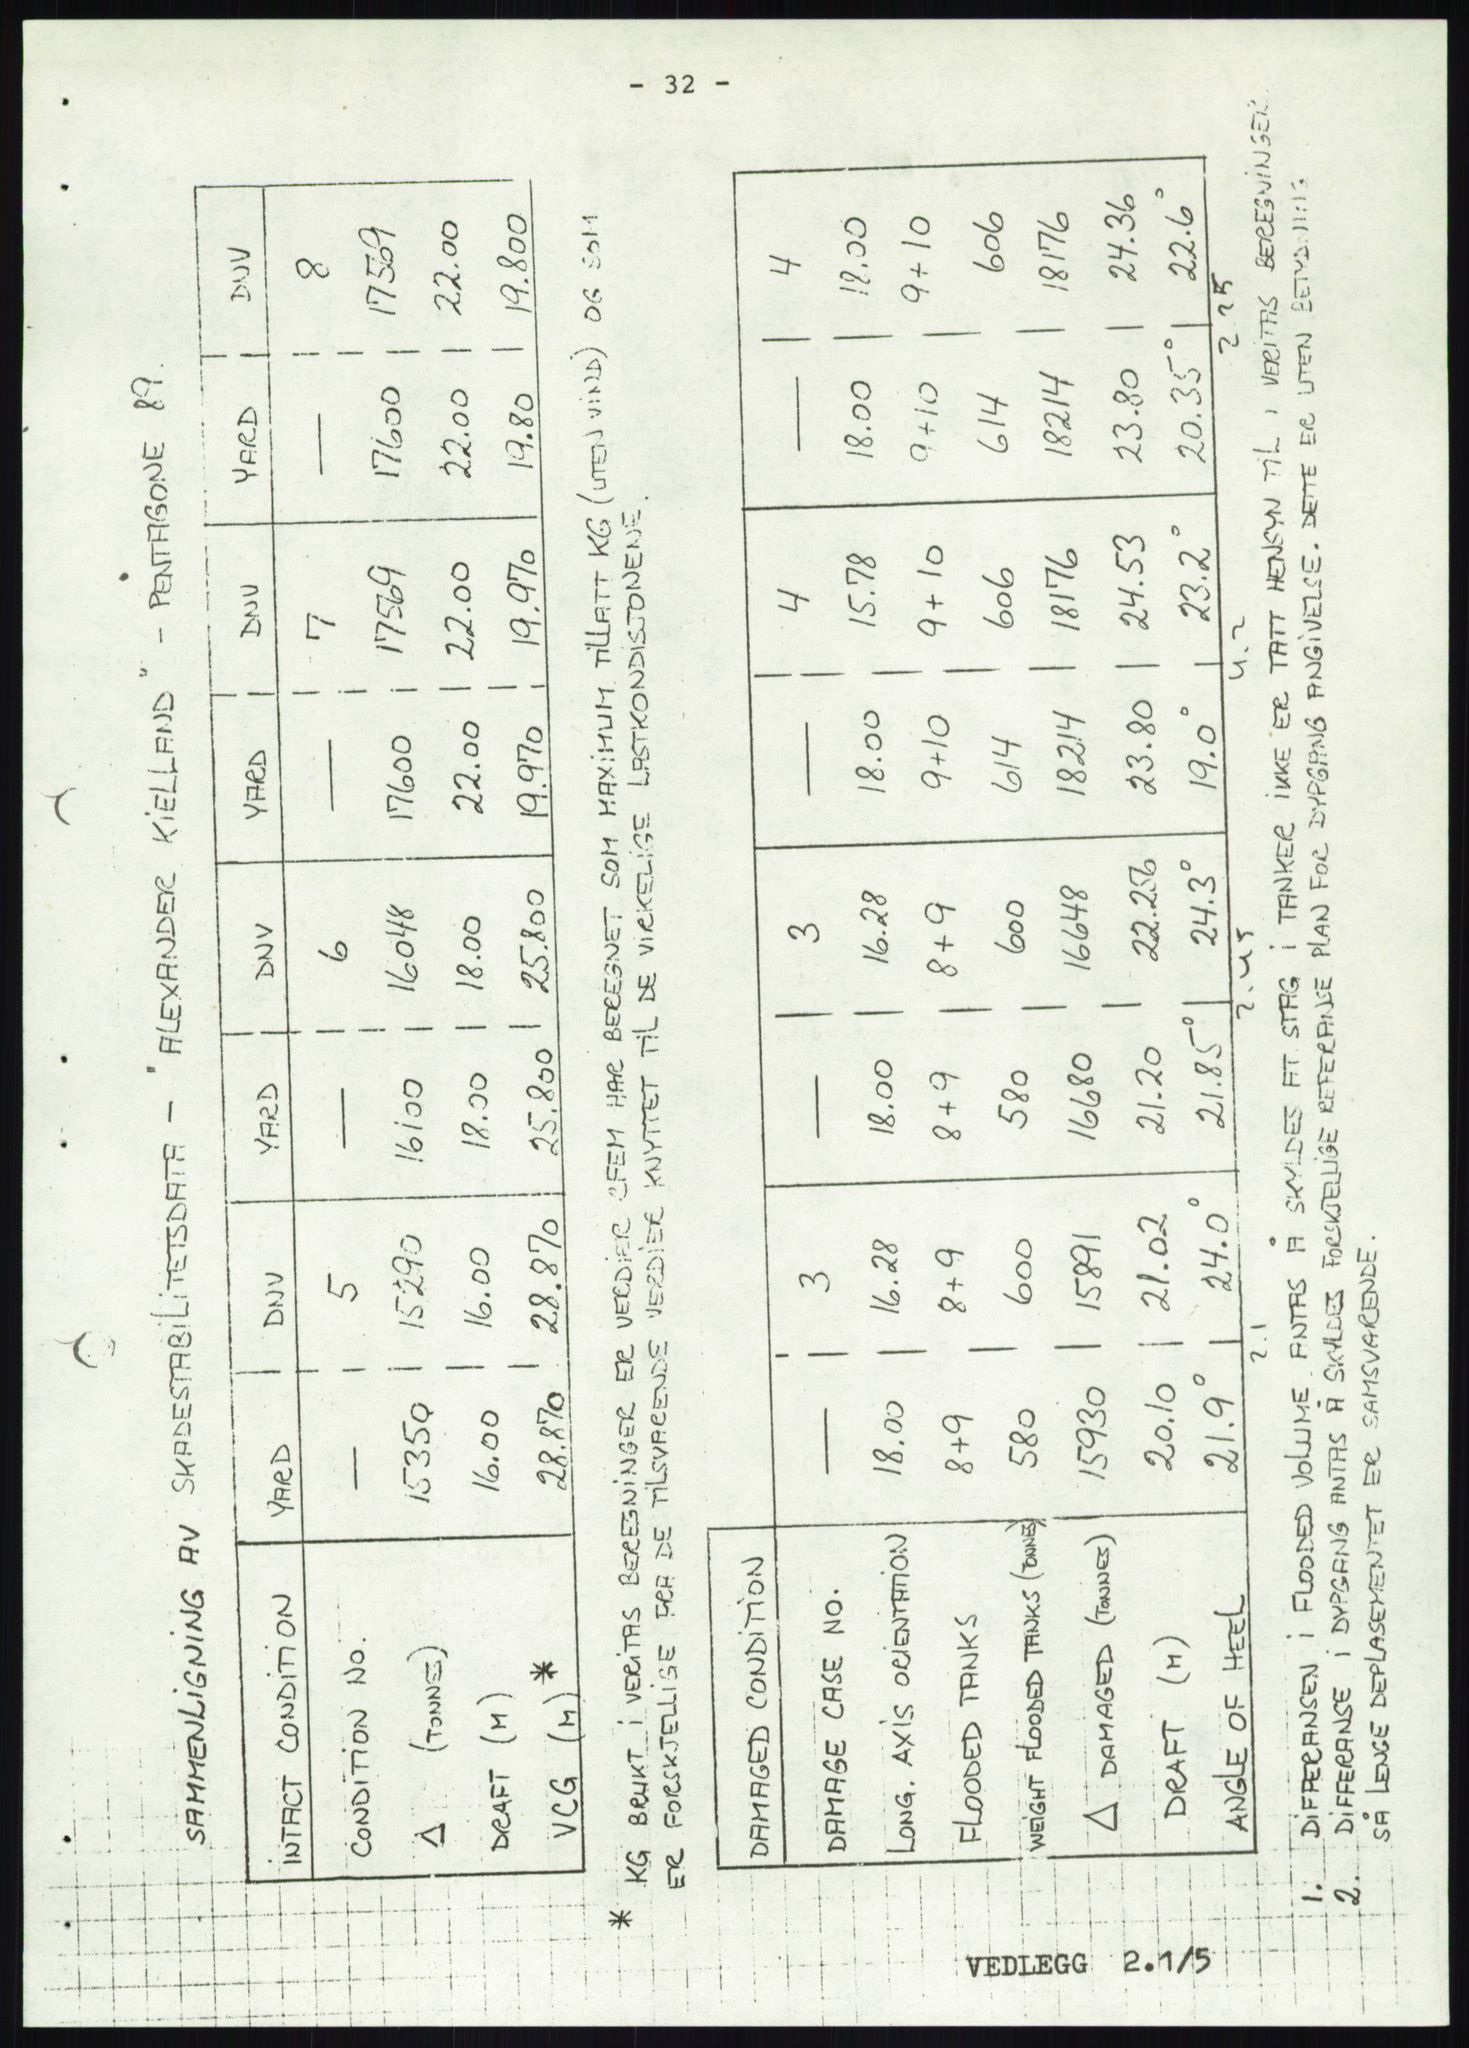 - 32 -
SAMMENLIGNING AV SKADESTABILITETSDATA - "ALEXANDER KIELLAND" - PENTAGONE 89.
INTACT CONDITION YARD DNV YARD DNV YARD DNV YARD DNV
CONDITION NO. — 5 — 6 — 7 — 8
Δ (TONNES) 15350 15290 16100 16048 17600 17569 17600 17569
DRAFT (M) 16.00 16.00 18.00 18.00 22.00 22.00 22.00 22.00
VCG (M) * 28.870 28.870 25.800 25.800 19.970 19.970 19.80 19.800
* KG BRUKT I VERITAS BEREGNINGER ER VERDIER CFEM HAR BEREGNET SOM MAXIMUM TILLATT KG (UTEN VIND) OG SOM
ER FORSKJELLIGE FRA DE TILSVARENDE VERDIER KNYTTET TIL DE VIRKELIGE LASTKONDISJONENE.
DAMAGED CONDITION
DAMAGE CASE NO. — 3 — 3 — 4 — 4
LONG. AXIS ORIENTATION 18.00 16.28 18.00 16.28 18.00 15.78 18.00 18.00
FLOODED TANKS 8+9 8+9 8+9 8+9 9+10 9+10 9+10 9+10
WEIGHT FLOODED TANKS (TONNES) 580 600 580 600 614 606 614 606
Δ DAMAGED (TONNES) 15930 15891 16680 16648 18214 18176 18214 18176
DRAFT (M) 20.10 21.02 21.20 22.256 23.80 24.53 23.80 24.36
ANGLE OF HEEL 21.9° 24.0° 21.85° 24.3° 19.0° 23.2° 20.35° 22.6°
2.1 2.45 4.2 2.25
1. DIFFERANSEN I FLOODED VOLUME ANTAS Å SKYLDES AT STAG I TANKER IKKE ER TATT HENSYN TIL I VERITAS BEREGNINGER.
2. DIFFERANSE I DYPGANG ANTAS Å SKYLDES FORSKJELLIGE REFERANSE PLAN FOR DYPGANG ANGIVELSE. DETTE ER UTEN BETYDNING
SÅ LENGE DEPLASEMENTET ER SAMSVARENDE.
VEDLEGG 2.1/5